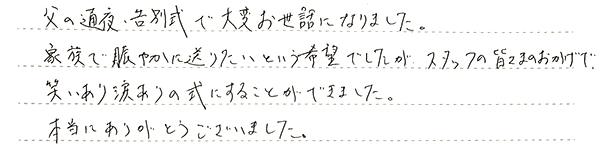 父の通夜、告別式で大変お世話になりました。
家族で賑やかに送りたいという希望でしたが、スタッフの皆さまのおかげで、
笑いあり涙ありの式にすることができました。
本当にありがとうございました。